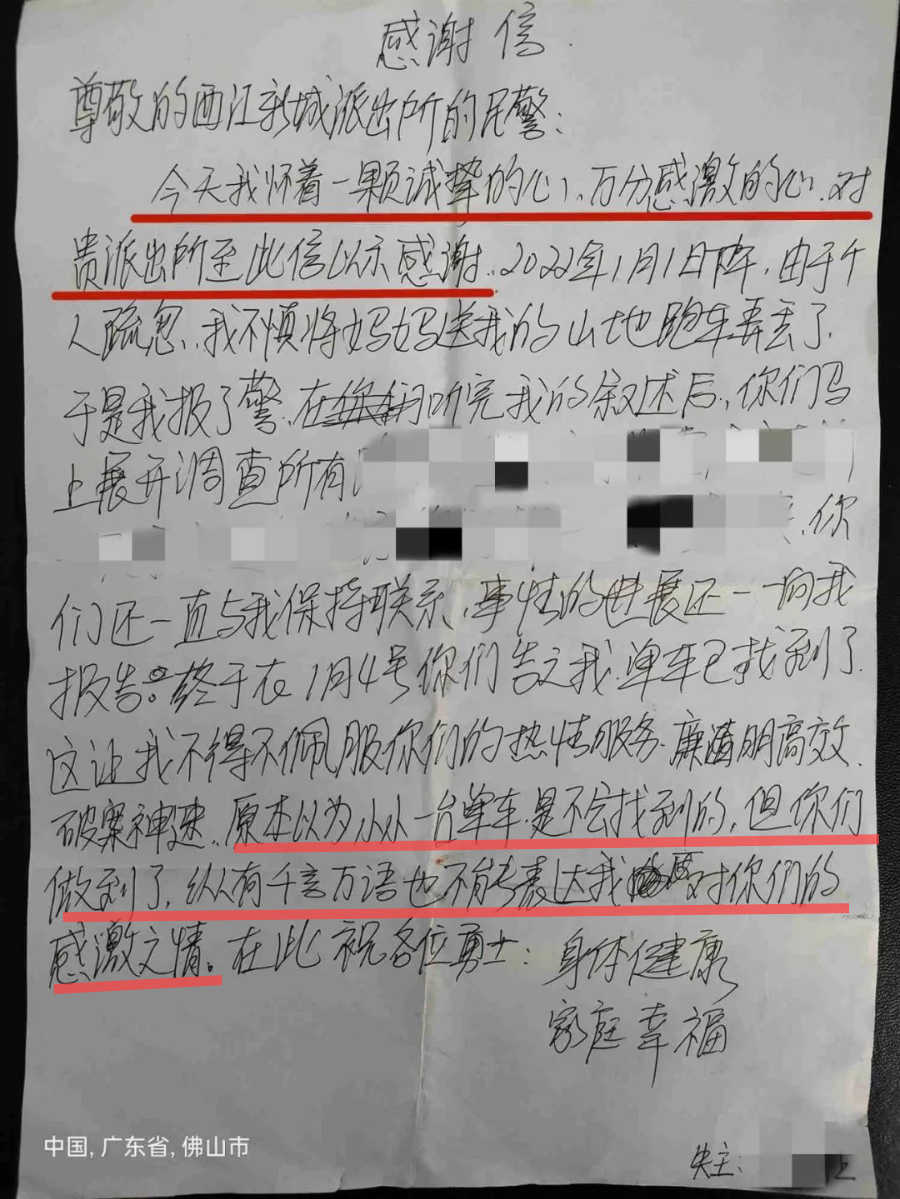 感谢信.
尊敬的西江新城派出所的民警:
今天我怀着一颗诚挚的心、万分感激的心.对
贵派出所至此信以示感谢.2022年1月1日下午,由于个
人疏忽.我不慎将妈妈送我的山地跑车弄丢了.
于是我报了警.在听完我的叙述后,你们马
上展开调查所有
你
们还一直与我保持联系,事情的进展还一一向我
报告。终于在1月4号你们告之我.单车已找到了.
这让我不得不佩服你们的热情服务.廉洁明高效.
破案神速.原本以为小小一台单车.是不会找到的,但你们
做到了,纵有千言万语也不能表达我对你们的
感激之情。在此祝各位勇士:身体健康
家庭幸福
中国,广东省,佛山市
失主: